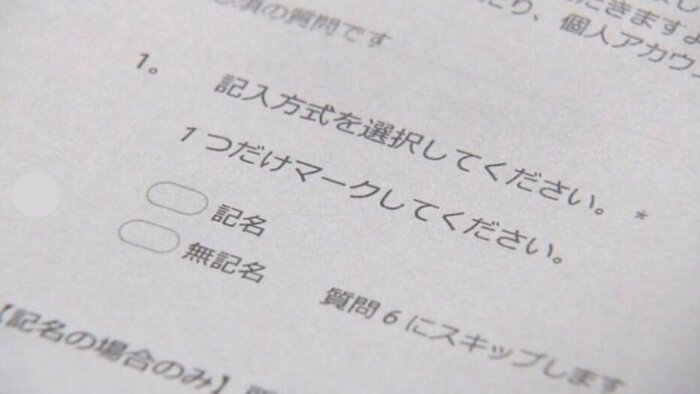 だきますよ
たり、個人アカウ
須の質問です
1。 記入方式を選択してください。 *
1 つだけマークしてください。
記名
無記名 質問 6 にスキップします
【記名の場合のみ】